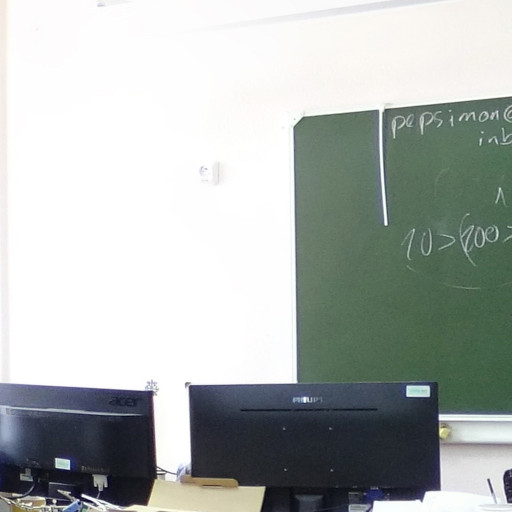 pepsimon@
inb
1
10>(200>
acer
PHILIPS